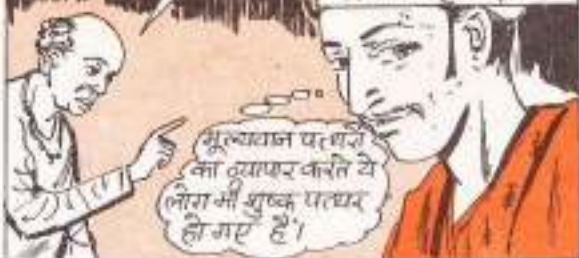 मूल्यवान पत्थरों
का व्यापार करते ये
लोग भी शुष्क पत्थर
हो गए हैं।